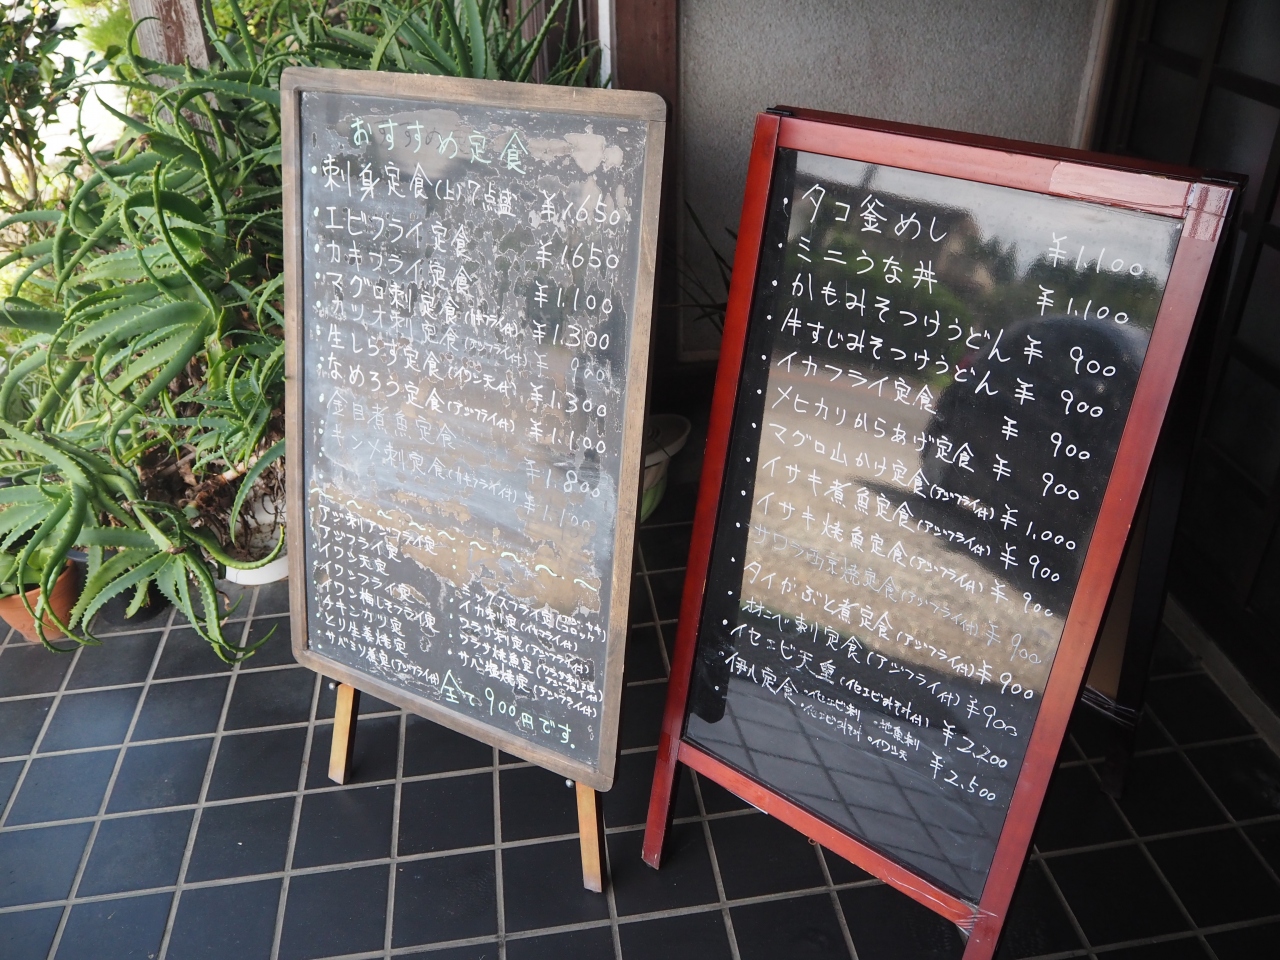 おすすめ定食
・刺身定食(上)7点盛 ¥1,650
・エビフライ定食 ¥1,650
・カキフライ定食 ¥1,100
・マグロ刺定食(カキフライ付) ¥1,300
・カツオ刺定食(アジフライ付) ¥ 900
・生しらす定食(イワシ天付) ¥1,300
・なめろう定食(アジフライ付) ¥1,100
・金目煮魚定食 ¥1,800
・キンメ刺定食(カキフライ付) ¥1,100
・アジ刺アジフライ定
・アジフライ定
・イワシ天定
・イワシフライ定
・イワシ梅しそフライ定
・チキンカツ定
・とり生姜焼定
・サバミソ煮定(アジフライ付)
・ミックスフライ定
・イカ刺定(イカフライ付)
・ワラサ刺定(アジフライ付)
・ワラサ焼魚定
・サバ塩焼定(アジフライ付)
全て900円です。
・タコ釜めし ¥1,100
・ミニうな丼 ¥1,100
・かもみそつけうどん ¥ 900
・牛すじみそつけうどん ¥ 900
・イカフライ定食 ¥ 900
・メヒカリからあげ定食 ¥ 900
・マグロ山かけ定食(アジフライ付) ¥1,000
・イサキ煮魚定食(アジフライ付) ¥900
・イサキ焼魚定食(アジフライ付) ¥ 900
・サワラ西京焼定食(アジフライ付) ¥900
・タイかぶと煮定食(アジフライ付) ¥900
・オオニベ刺定食(アジフライ付) ¥900
・イセエビ天重(イセエビみそ汁付) ¥2,200
・伊八定食 ・イセエビ刺 ・地魚刺 ¥2,500
・イセエビみそ汁 ・イワシ天